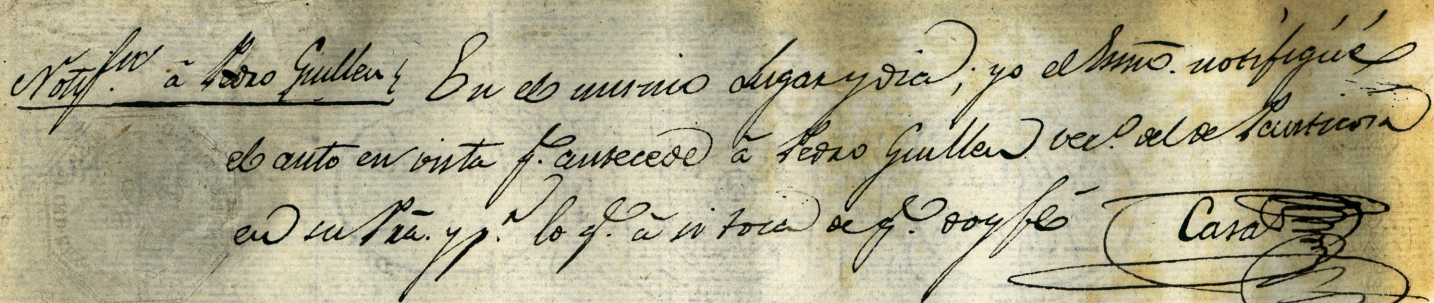 Notif.on â Pedro Guillen{ En el mismo Lugar y dia; yo el Essño. notifiqué
el auto en vista q.e antecede â Pedro Guillen vec.o del de Panticosa
en su Prã. y p.r lo q.e â si toca de q.e doy fé Casas